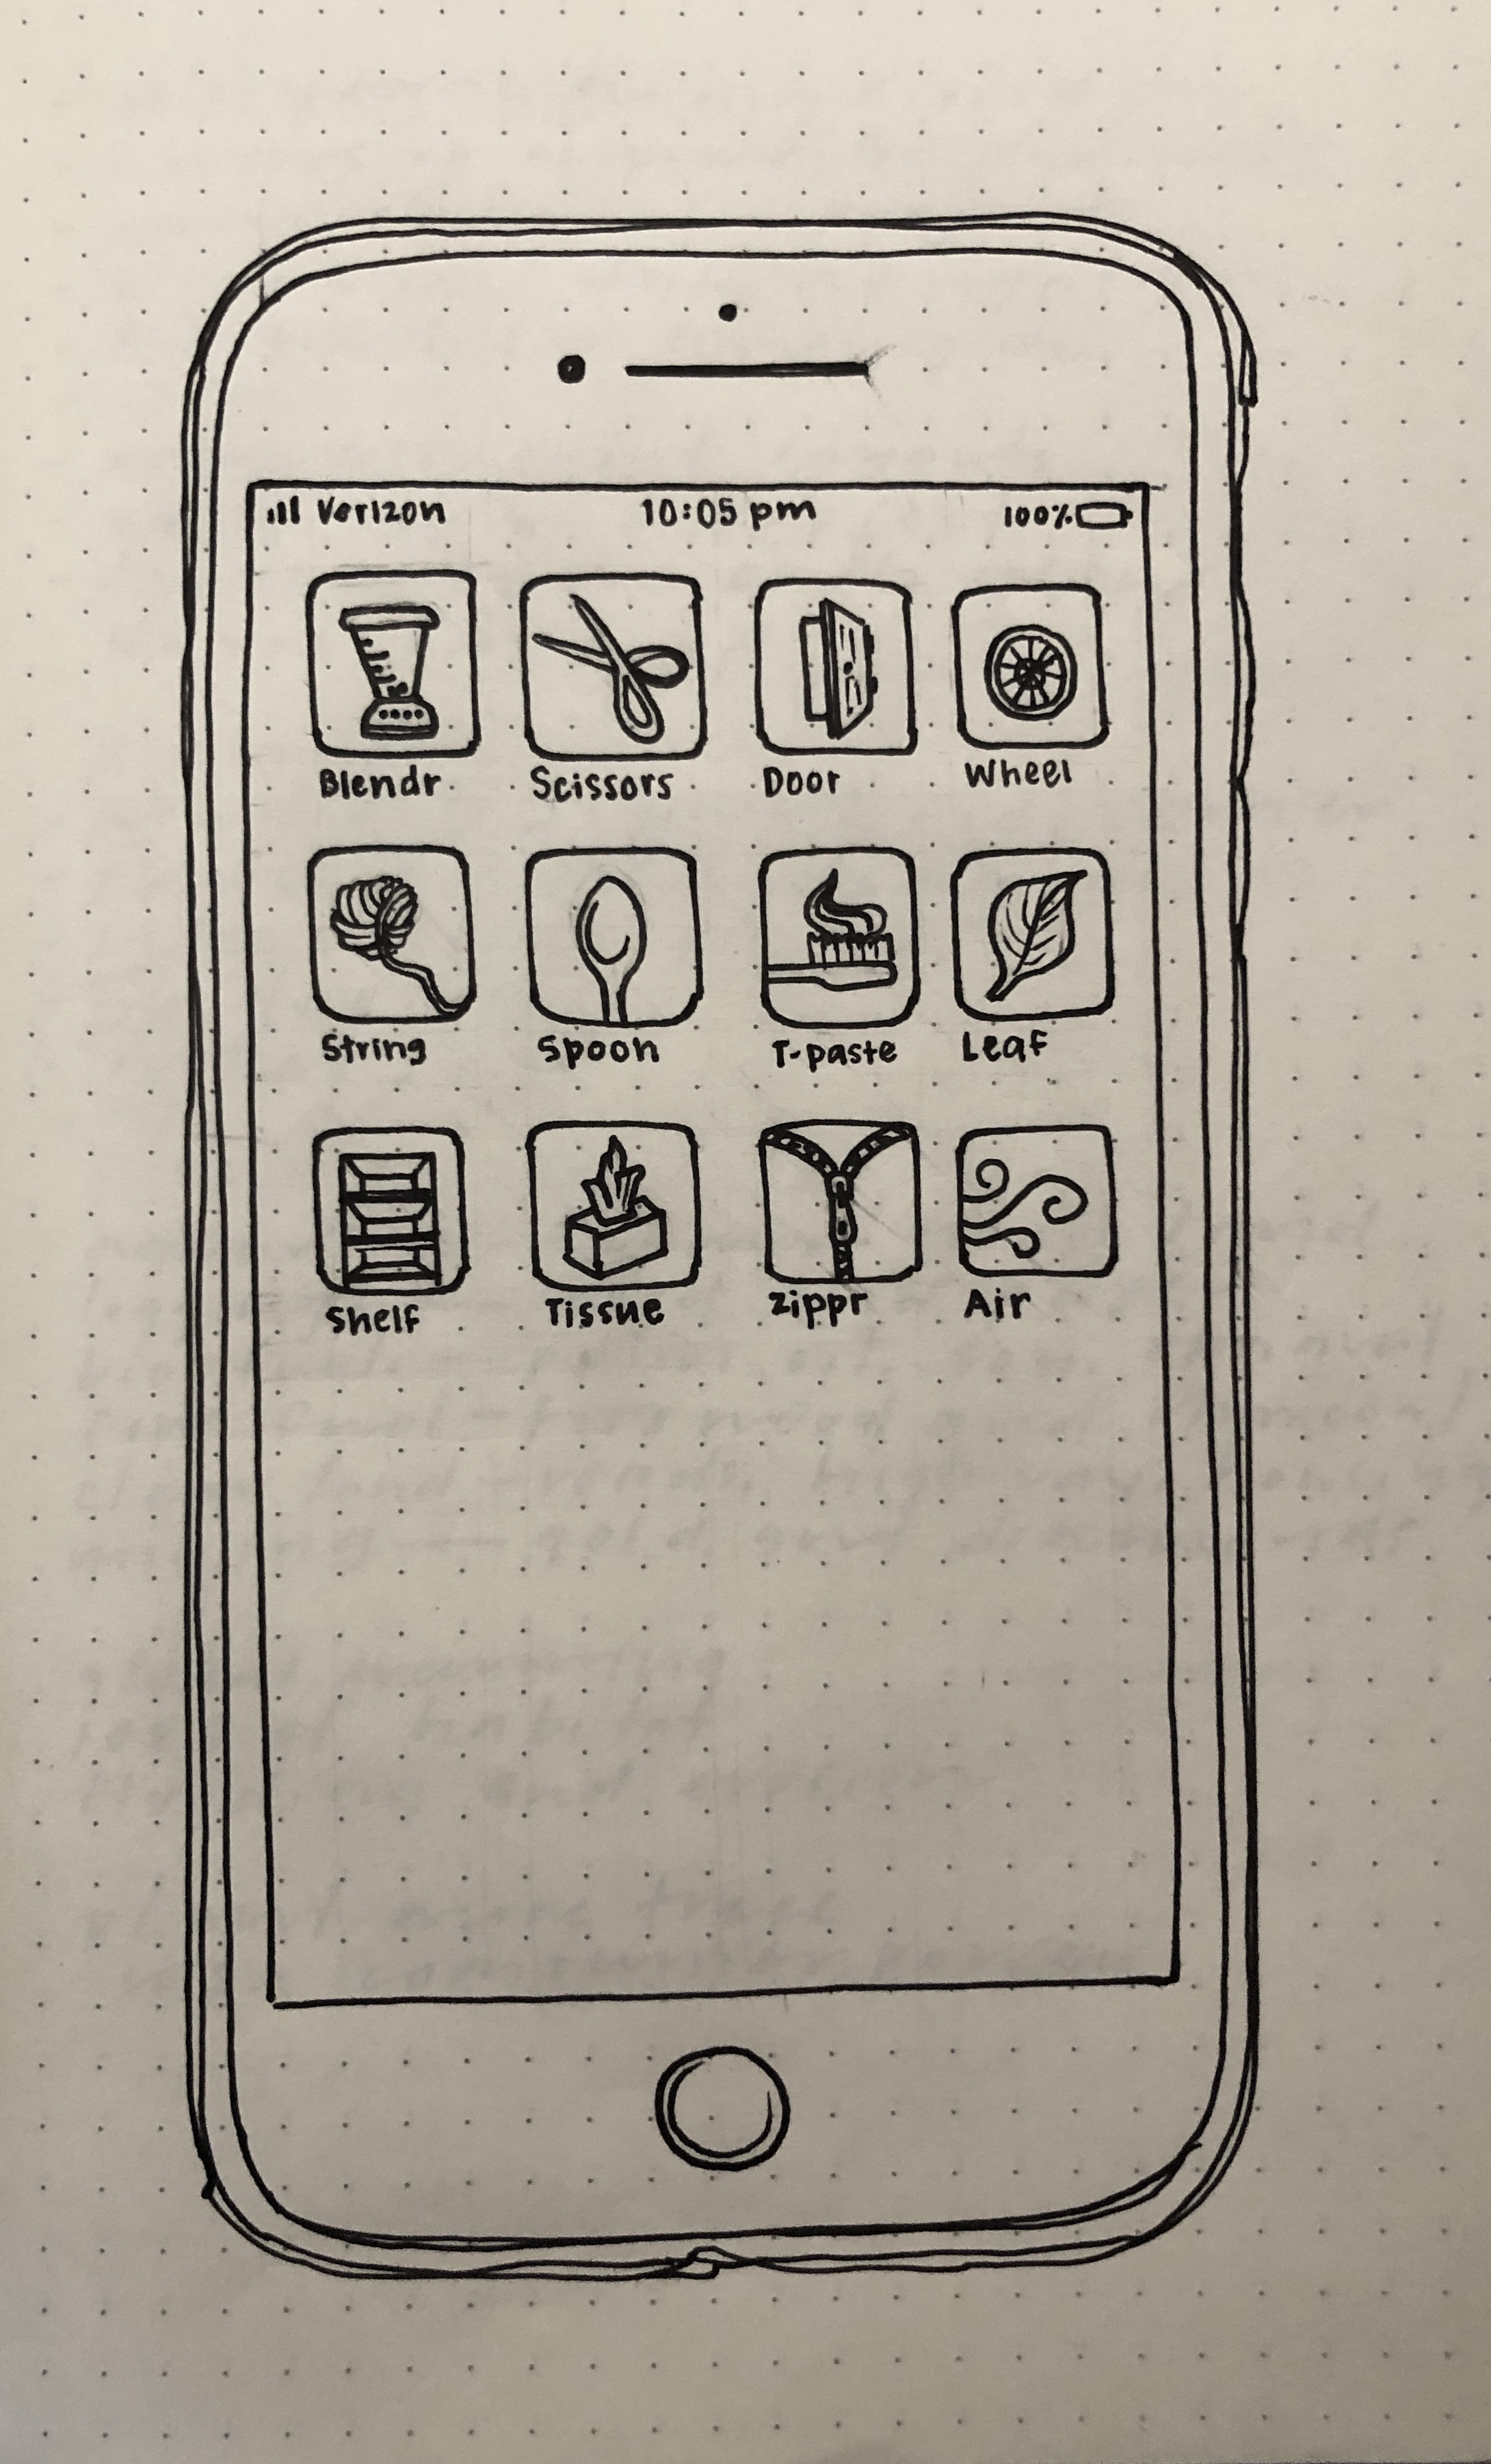 Verizon 10:05 pm 100%
Blendr Scissors Door Wheel
String Spoon T-paste Leaf
Shelf Tissue Zippr Air